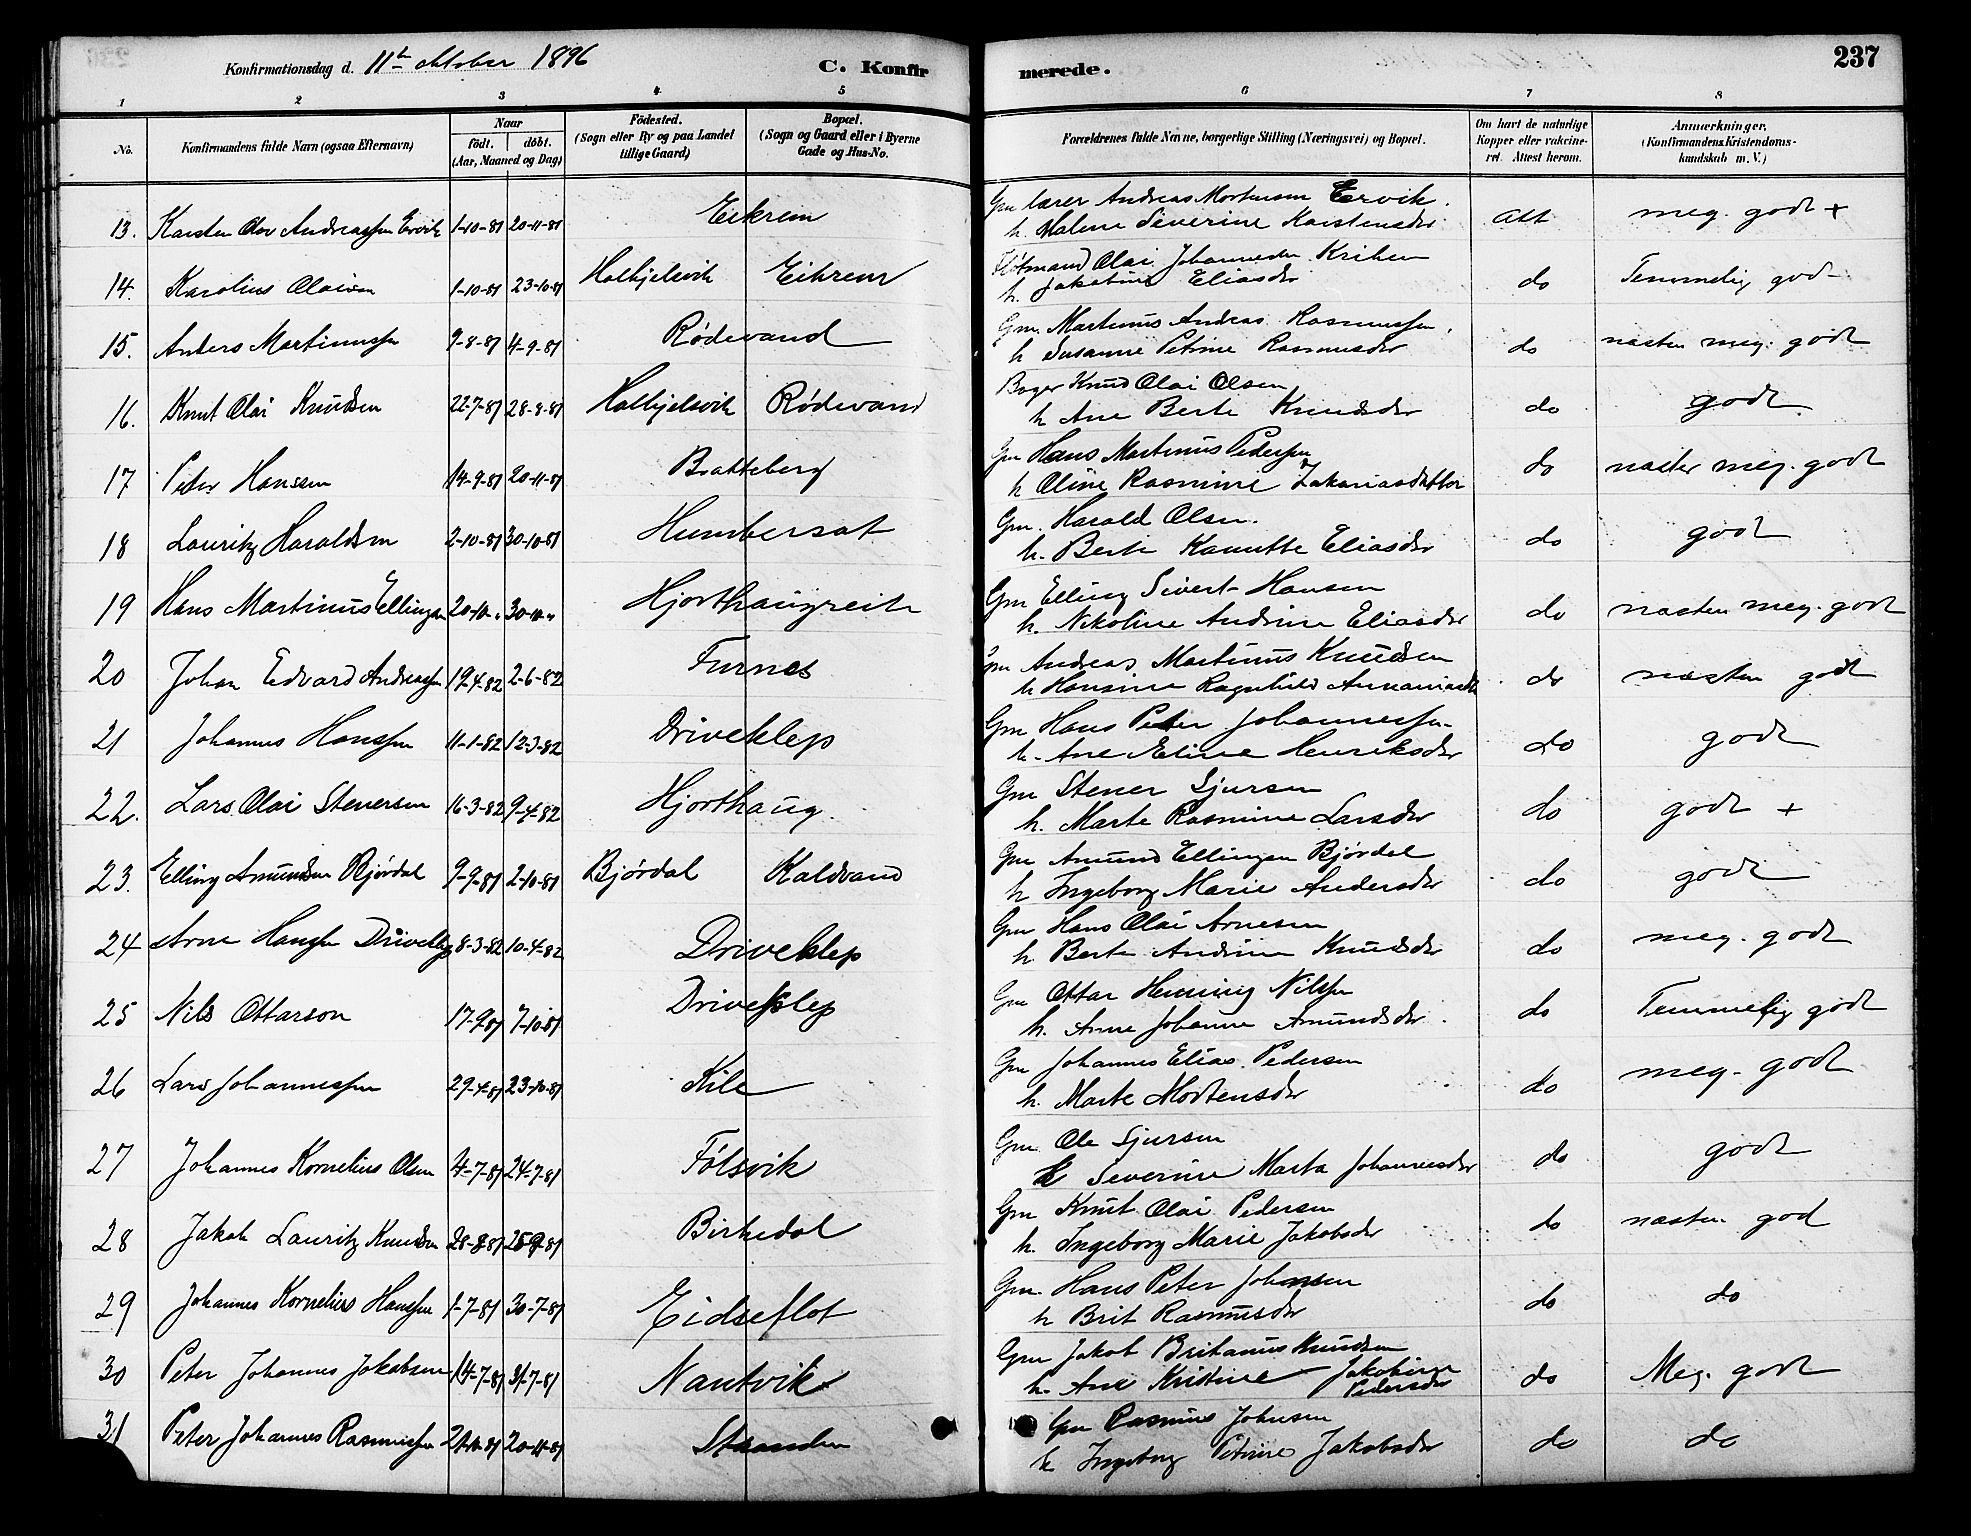 Konfirmationsdag d. 11te oktober 1896 C. Konfirmerede. 237
1 2 3 4 5 6 7 8
No. Konfirmandens fulde Navn (ogsaa Efternavn) Naar født. døbt. (Aar, Maaned og Dag) Fødested. (Sogn eller By og paa Landet tillige Gaard) Bopæl. (Sogn og Gaard eller i Byerne Gade og Hus-No. Forældrenes fulde Navne, borgerlige Stilling (Næringsvei) og Bopæl. Om havt de naturlige Kopper eller vakcineret. Attest herom. Anmærkninger. (Konfirmandens Kristendomskundskab m. V.)
13. Karsten Olav Andreassen Ervik 1-10-81 20-11-81 Eikrem Gm lærer Andreas Mortensen Ervik.
h. Malene Severine Karstensdr att meg. godt +
14. Karolius Olaisen 1-10-81 23-10-81 Halkjelsvik Eikrem Olai Johannesen
h. Jakobine Eliasdr do Temmelig godt
15. Anders Martinussen 9-8-81 4-9-81 Rødevand Gm. Martinus Andreas Rasmussen.
h Susanne Petrine Rasmusdr do næsten meg. godt
16. Knut Olai Knudsen 22-7-81 28-8-81 Halkjelsvik Rødevand Knud Olai Olsen
h Ane Berte Knudsdr do godt
17 Peter Hanssen 14-9-81 20-11-81 Bratteberg Gm Hans Martinus Pedersen
h Oline Rasmine Zakariasdatter do næsten meg. godt
18 Lauritz Haraldsen 2-10-81 30-10-81 Humbersæt Gm. Harald Olsen.
h. Berte Kanutte Eliasdr do godt
19 Hans Martinus Ellingsen 20-10-" 30-10-" Hjorthaugreite Gm Elling Sivert Hansen
h. Nikoline Andrine Eliasdr do næsten meg. godt
20 Johan Edvard Andreassen 19-4-82 2-6-82 Furnes Gm Andreas Martinus Knudsen
h Hansine Ragnhild do næsten godt
21 Johannes Hanssen 11-1-82 12-3-82 Driveklep Gm Hans Peter Johannessen
h. Ane Eline Henriksdr do godt
22. Lars Olai Stenersen 16-3-82 9-4-82 Hjorthaug. Gm Stener Sjursen
h. Marte Rasmine Larsdr do godt +
23. Elling Amundsen Bjørdal 9-9-81 2-10-81 Bjørdal Kaldvand Gm Amund Ellingsen Bjørdal
h Ingeborg Marie Andersdr do godt
24 Arne Hansen Driveklep 8-3-82 10-4-82 Driveklep Gm Hans Olai Arnesen
h. Berte Andrine Knudsdr do meg. godt
25 Nils Ottarson 17-9-81 7-10-81 Driveklep Gm Ottar Henning Nilssen
h. Anne Johanne Amundsdr. do Temmelig godt
26 Lars Johannessen 29-4-81 23-10-81 Kile Gm Johannes Elias Pedersen
h. Marte Mortensdr do meg. godt
27 Johannes Kornelius Olsen 4-7-81 24-7-81 Følsvik Gm Ole Sjursen
h Severine Marta Johannesdr do godt
28 Jakob Lauritz Knudsen 28-8-81 25-9-81 Birkedal Gm Knut Olai Pedersen
h. Ingeborg Marie Jakobsdr do næsten god
29 Johannes Kornelius Hanssen 1-7-81 30-7-81 Eidseflot Gm Hans Peter Johansen
h Brit Rasmusdr do do
30 Peter Johannes Jakobsen 14-7-81 31-7-81 Nautvik Gm Jakob Britanus Knudsen
h. Ane Kristine Jakobine
Pedersdr do Meg. godt
31 Peter Johannes Rasmussen 20-11-81 Stranden Gm Rasmus Johnsen
h Ingeborg Petrine Jakobsdr do do